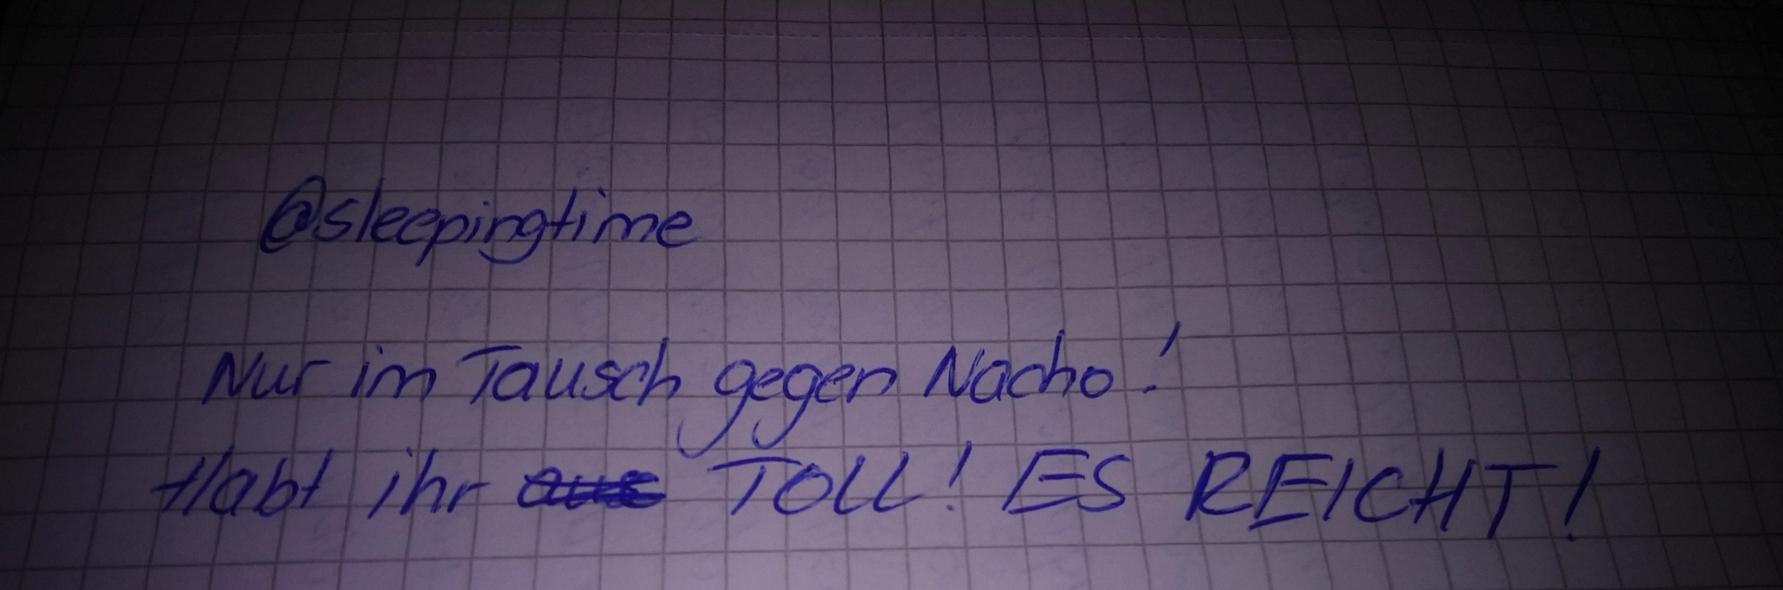 @sleepingtime
Nur im Tausch gegen Nacho!
Habt ihr TOLL! ES REICHT!